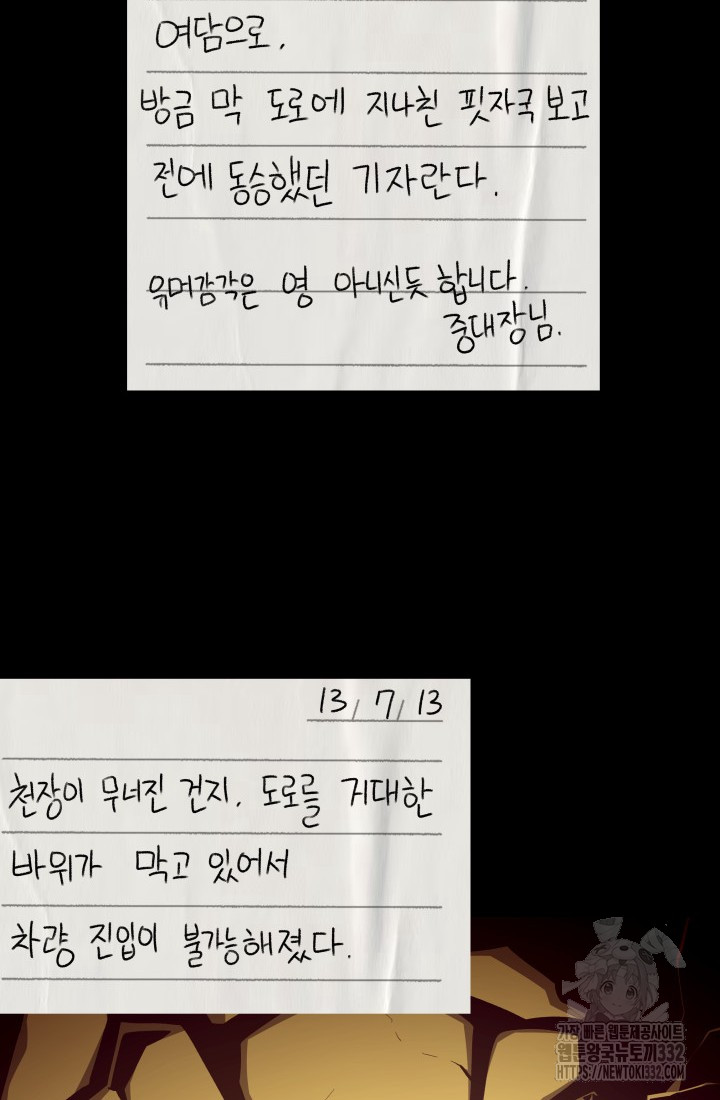 여담으로,
방금 막 도로에 지나친 핏자국 보고
전에 동승했던 기자란다.
유머감각은 영 아니신듯 합니다.
중대장님.
13/7/13
천장이 무너진 건지, 도로를 거대한
바위가 막고 있어서
차량 진입이 불가능해졌다.
가장 빠른 웹툰제공사이트
웹툰왕국뉴토끼332
HTTPS://NEWTOKI332.COM